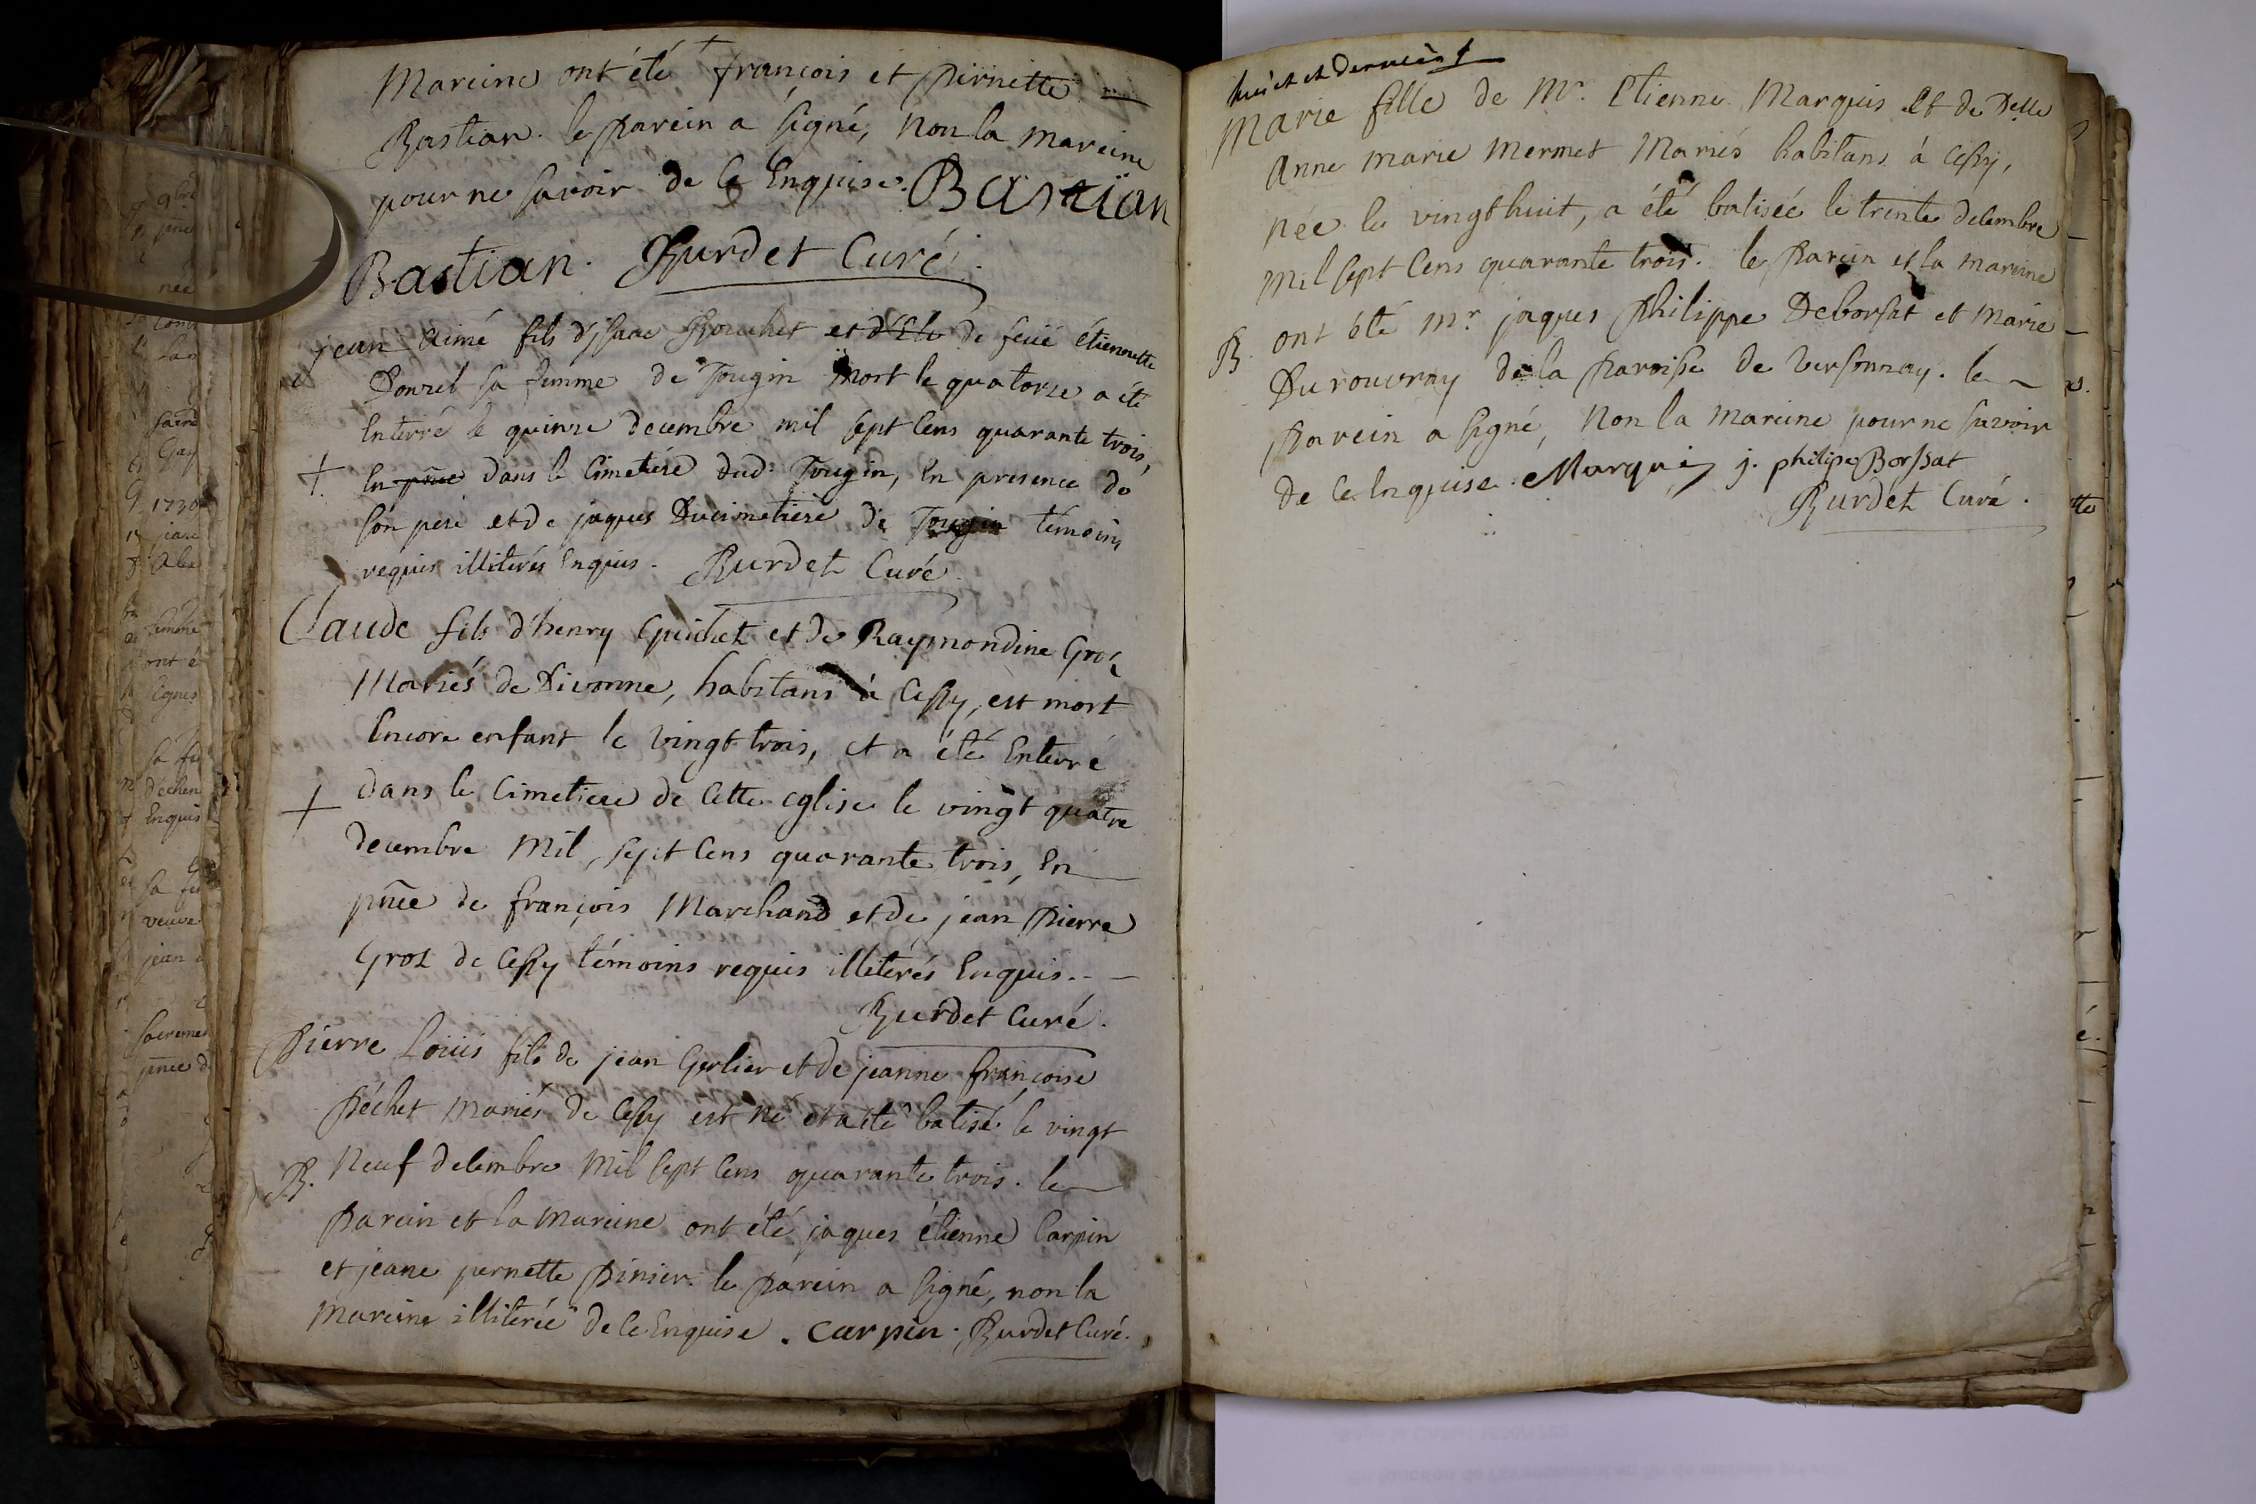 Mareine ont été françois et Pernette
Bastian. le parein a signé, non la mareine
pour ne savoir de ce Enquise. BASTïAN
Bastian. Burdet Curé.
jean Aimé fils d'jsaac Bouchet et d'Et de feüe étiennette
Donzel sa femme de Tougin mort le quatorze a été
Enterré le quinze decembre mil sept Cens quarante trois,
+ En pñce dans le Cimetiére dud. Tougin, En presence de
son pere et de jaques Ducimetiére de Tougin témoins
requis illitérés Enquis. Burdet Curé.
Claude fils d'henry Guichet et de Raymondine Groz
Mariés de Divonne, habitans à Cessy, est mort
Encore enfant le vingt trois, et a été Enterré
+ dans le Cimetiere de Cette eglise le vingt quatre
decembre Mil sept Cens quarante trois, En
pñce de françois Marchand et de jean Pierre
Groz de Cessy témoins requis illitérés Enquis.
Burdet Curé.
Pierre Loüis fils de jean Gerlier et de jeanne françoise
Péchet mariés de Cessy est né et a été batisé le vingt
B. Neuf decembre Mil sept Cens quarante trois. le
Parein et la mareine ont été jaques étienne Carpin
et jeane pernette Pinier. le Parein a signé, non la
Mareine illitérée de ce Enquise. carpin. Burdet Curé.
huict et dernier
Marie fille de Mr. Etienne Marquis et de Delle
Anne marie Mermet Mariés habitans à Cessy,
née le vingt huit, a été batisée le trente decembre
Mil sept Cens quarante trois. le Parein et la mareine
B. ont été mr. jaques Philippe Deborsat et Marie
Durouvray de la Paroisse de Versonnay. le
Parein a signé, Non la Mareine pour ne savoir
de ce Enquise. Marquis j. philipe Borssat
Burdet Curé.